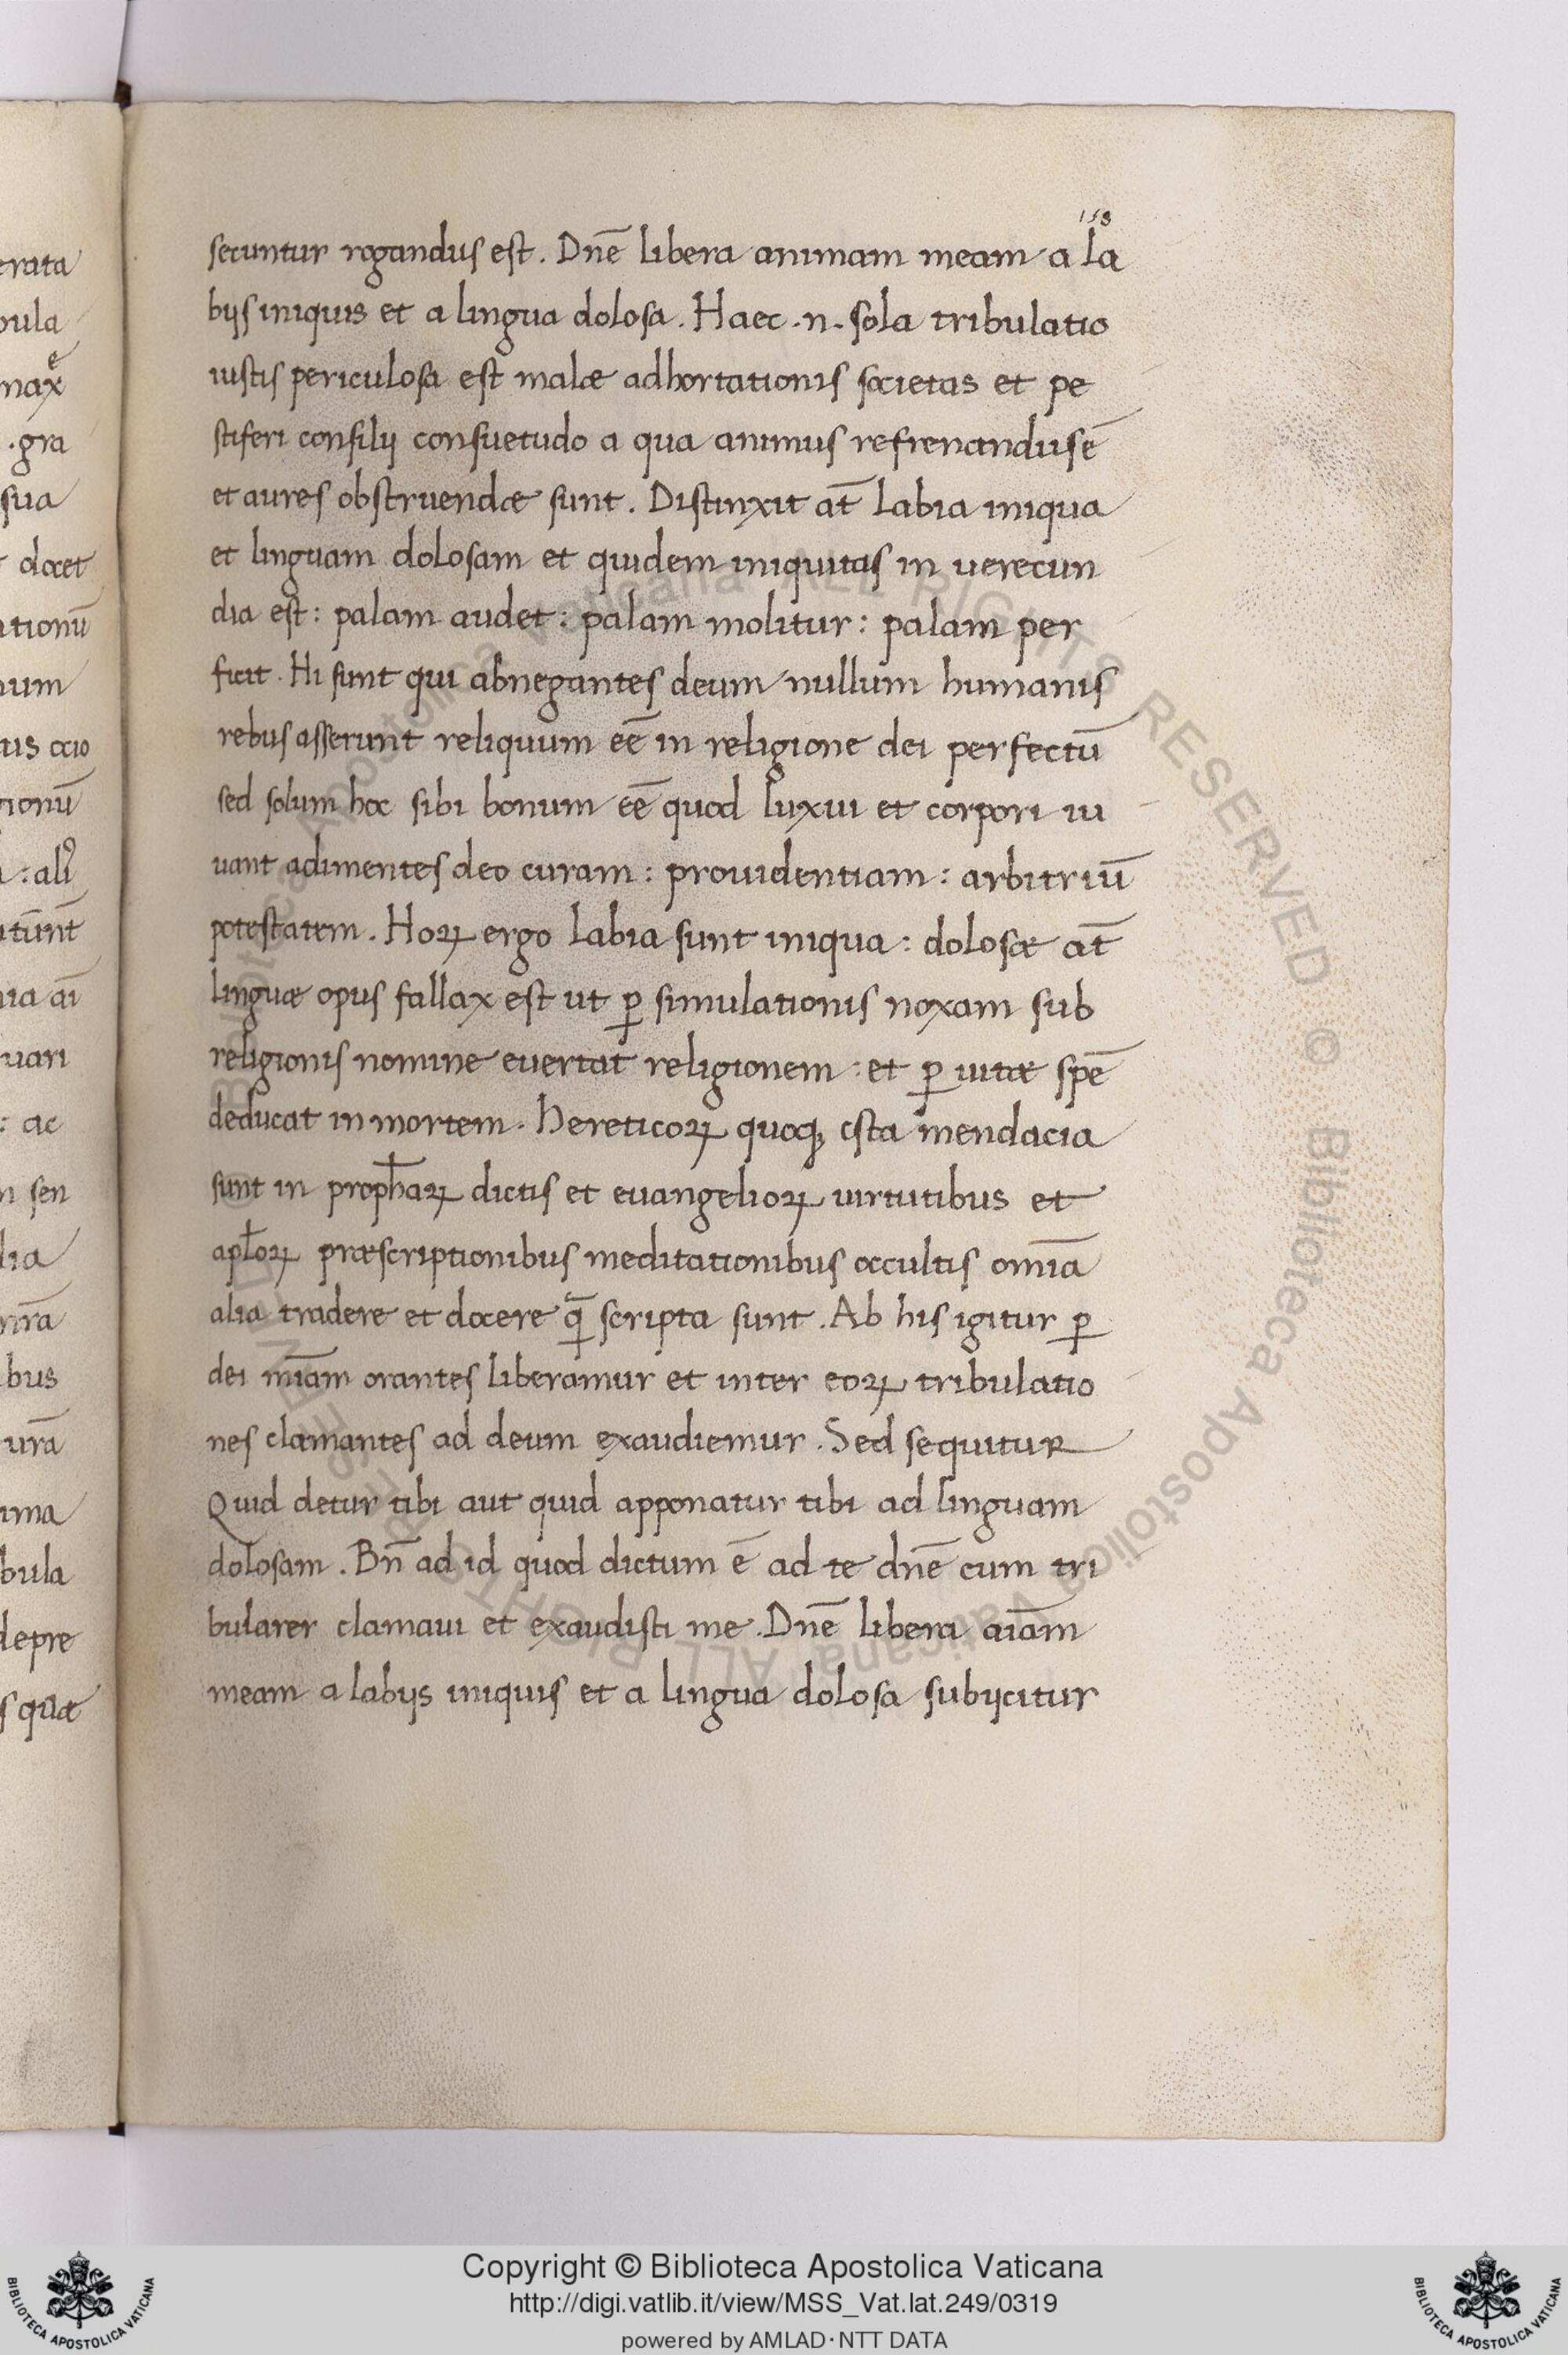 158
secuntur rogandus est. Dnē libera animam meam a la
bijs iniquis et a lingua dolosa. Haec .n. sola tribulatio
iustis periculosa est malæ adhortationis societas et pe
stiferi consilij consuetudo a qua animus refrenandus ē
et aures obstruendæ sunt. Distinxit at̄ labia iniqua
et linguam dolosam et quidem iniquitas in uerecun
dia est: palam audet: palam molitur: palam per
ficit. Hi sunt qui abnegantes deum nullum humanis
rebus asserunt reliquum eē in religione dei perfectū
sed solum hoc sibi bonum eē quod luxui et corpori iu
uant adimentes deo curam: prouidentiam: arbitriū
potestatem. Hoꝝ ergo labia sunt iniqua: dolosæ at̄
linguæ opus fallax est ut ꝑ simulationis noxam sub
religionis nomine euertat religionem: et ꝑ uitæ spē
deducat in mortem. Hereticoꝝ quoqꝫ ista mendacia
sunt in prophaꝝ̄ dictis et euangelioꝝ uirtutibus et
apl̄oꝝ præscriptionibus meditationibus occultis omīa
alia tradere et docere q̄ scripta sunt. Ab his igitur ꝑ
dei mīam orantes liberamur et inter eoꝝ tribulatio
nes clamantes ad deum exaudiemur. Sed sequitur
Quid detur tibi aut quid apponatur tibi ad linguam
dolosam. Bn̄ ad id quod dictum ē ad te dnē cum tri
bularer clamaui et exaudisti me. Dnē libera aīam
meam a labijs iniquis et a lingua dolosa subijcitur
erata
max̄
.gra
sua
docet
num
sen
bus
bula
depre
Copyright © Biblioteca Apostolica Vaticana
http://digi.vatlib.it/view/MSS_Vat.lat.249/0319
powered by AMLAD·NTT DATA
BIBLIOTECA APOSTOLICA VATICANA
BIBLIOTECA APOSTOLICA VATICANA